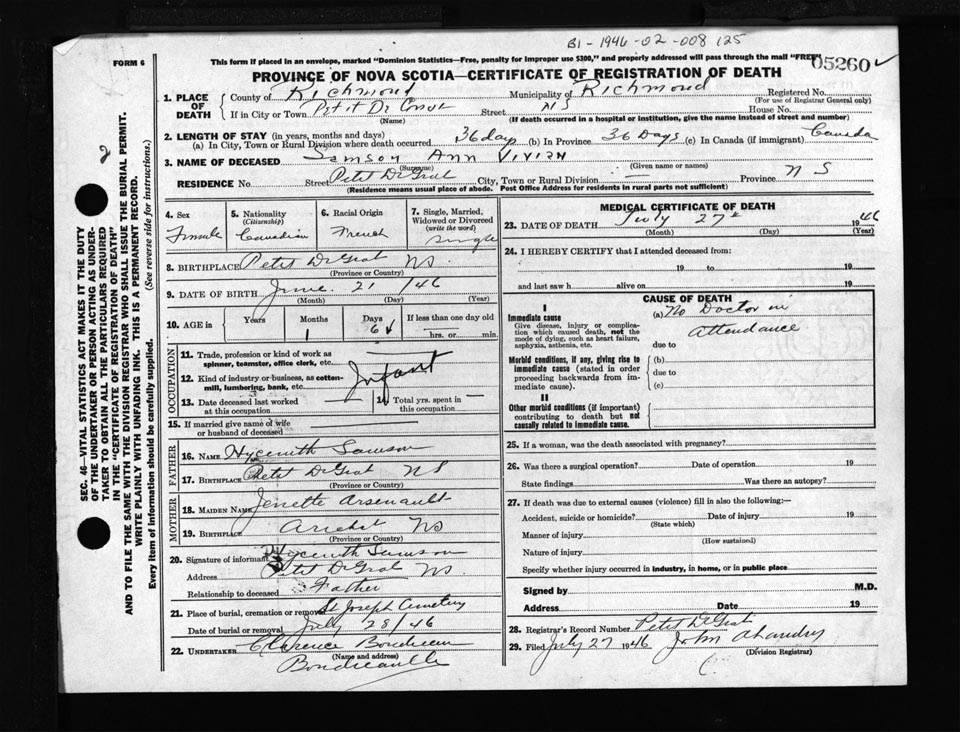 B1-1946-02-008125
FORM 6
This form if placed in an envelope, marked "Dominion Statistics—Free, penalty for improper use $300," and properly addressed will pass through the mail "FREE"
05260
PROVINCE OF NOVA SCOTIA—CERTIFICATE OF REGISTRATION OF DEATH
1. PLACE OF DEATH
County of Richmond Municipality of Richmond Registered No.
(For use of Registrar General only)
If in City or Town Petit De Street NS House No.
(Name) (If death occurred in a hospital or institution, give the name instead of street and number)
2. LENGTH OF STAY (in years, months and days)
(a) In City, Town or Rural Division where death occurred 36 days (b) in Province 36 Days (c) In Canada (if immigrant) Canada
3. NAME OF DECEASED Samson Ann Vivian
(Surname) (Given name or names)
RESIDENCE No. Street Petit De Grat City, Town or Rural Division — Province N S
(Residence means usual place of abode. Post Office Address for residents in rural parts not sufficient)
4. Sex Female
5. Nationality (Citizenship) Canadian
6. Racial Origin French
7. Single, Married, Widowed or Divorced (write the word) single
8. BIRTHPLACE Petit De Grat NS.
(Province or Country)
9. DATE OF BIRTH June 21 /46
(Month) (Day) (Year)
10. AGE in Years Months 1 Days 6 If less than one day
hrs. or min.
OCCUPATION
11. Trade, profession or kind of work as spinner, teamster, office clerk, etc.
12. Kind of industry or business, as cotton-mill, lumbering, bank, etc. Infant
13. Date deceased last worked at this occupation
14. Total yrs. spent in this occupation
15. If married give name of wife or husband of deceased
FATHER
16. Name Hycenith Samson
17. Birthplace Petit De Grat NS
(Province or Country)
MOTHER
18. Maiden Name Jenette Arsenault
19. Birthplace Arichat NS
(Province or Country)
20. Signature of informant Hycenith Samson
Address Petit De Grat NS.
Relationship to deceased Father
21. Place of burial, cremation or removal St Joseph Cemetery
Date of burial or removal July 28/46
22. UNDERTAKER Clarence Boudreau
(Name and address)
Boudreauville
MEDICAL CERTIFICATE OF DEATH
23. DATE OF DEATH July 27th 1946
(Month) (Day) (Year)
24. I HEREBY CERTIFY that I attended deceased from:
19 to 19
and last saw h alive on 19
CAUSE OF DEATH
I
Immediate cause
Give disease, injury or complication which caused death, not the mode of dying, such as heart failure, asphyxia, asthenia, etc.
(a) No Doctor in
Attendance
due to
Morbid conditions, if any, giving rise to immediate cause (stated in order proceeding backwards from immediate cause).
(b)
due to
(c)
II
Other morbid conditions (if important) contributing to death but not causally related to immediate cause.
25. If a woman, was the death associated with pregnancy?
26. Was there a surgical operation? Date of operation 19
State findings Was there an autopsy?
27. If death was due to external causes (violence) fill in also the following:—
Accident, suicide or homicide? Date of injury 19
(State which)
Manner of injury
(How sustained)
Nature of injury
Specify whether injury occurred in industry, in home, or in public place
Signed by M.D.
Address Date 19
28. Registrar's Record Number Petit De Grat
29. Filed July 27 1946 John
(Division Registrar)
SEC. 46—VITAL STATISTICS ACT MAKES IT THE DUTY
OF THE UNDERTAKER OR PERSON ACTING AS UNDER-
TAKER TO OBTAIN ALL THE PARTICULARS REQUIRED
IN THE "CERTIFICATE OF REGISTRATION OF DEATH"
AND TO FILE THE SAME WITH THE DIVISION REGISTRAR WHO SHALL ISSUE THE BURIAL PERMIT.
WRITE PLAINLY WITH UNFADING INK. THIS IS A PERMANENT RECORD.
Every item of information should be carefully supplied. (See reverse side for instructions.)
2